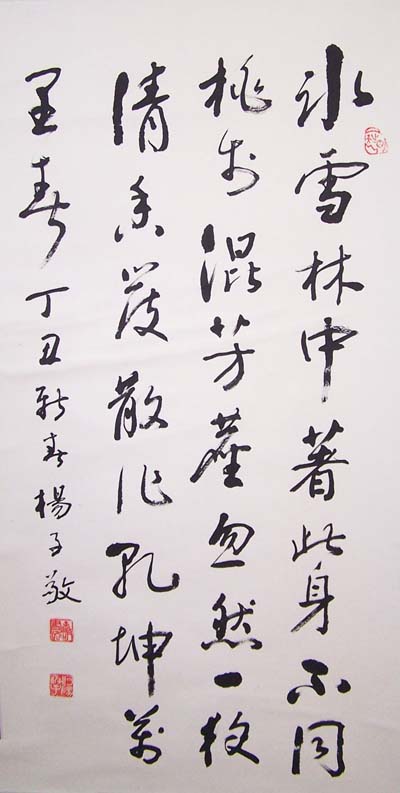 冰雪林中著此身不同
桃李混芳塵忽然一夜
清香發散作乾坤萬
里春 丁丑新春楊子敬